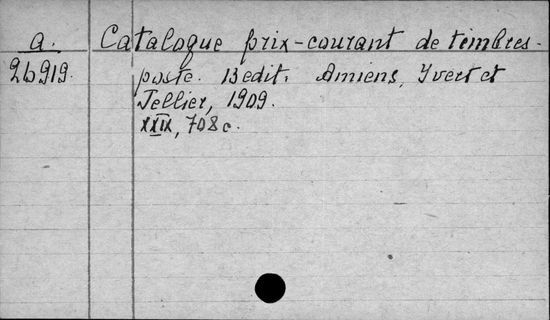 a. Catalogue prix-courant de timbres-
26919. poste. 13 edit. Amiens, Yvert et
Tellier, 1909.
XXIX, 708 c.